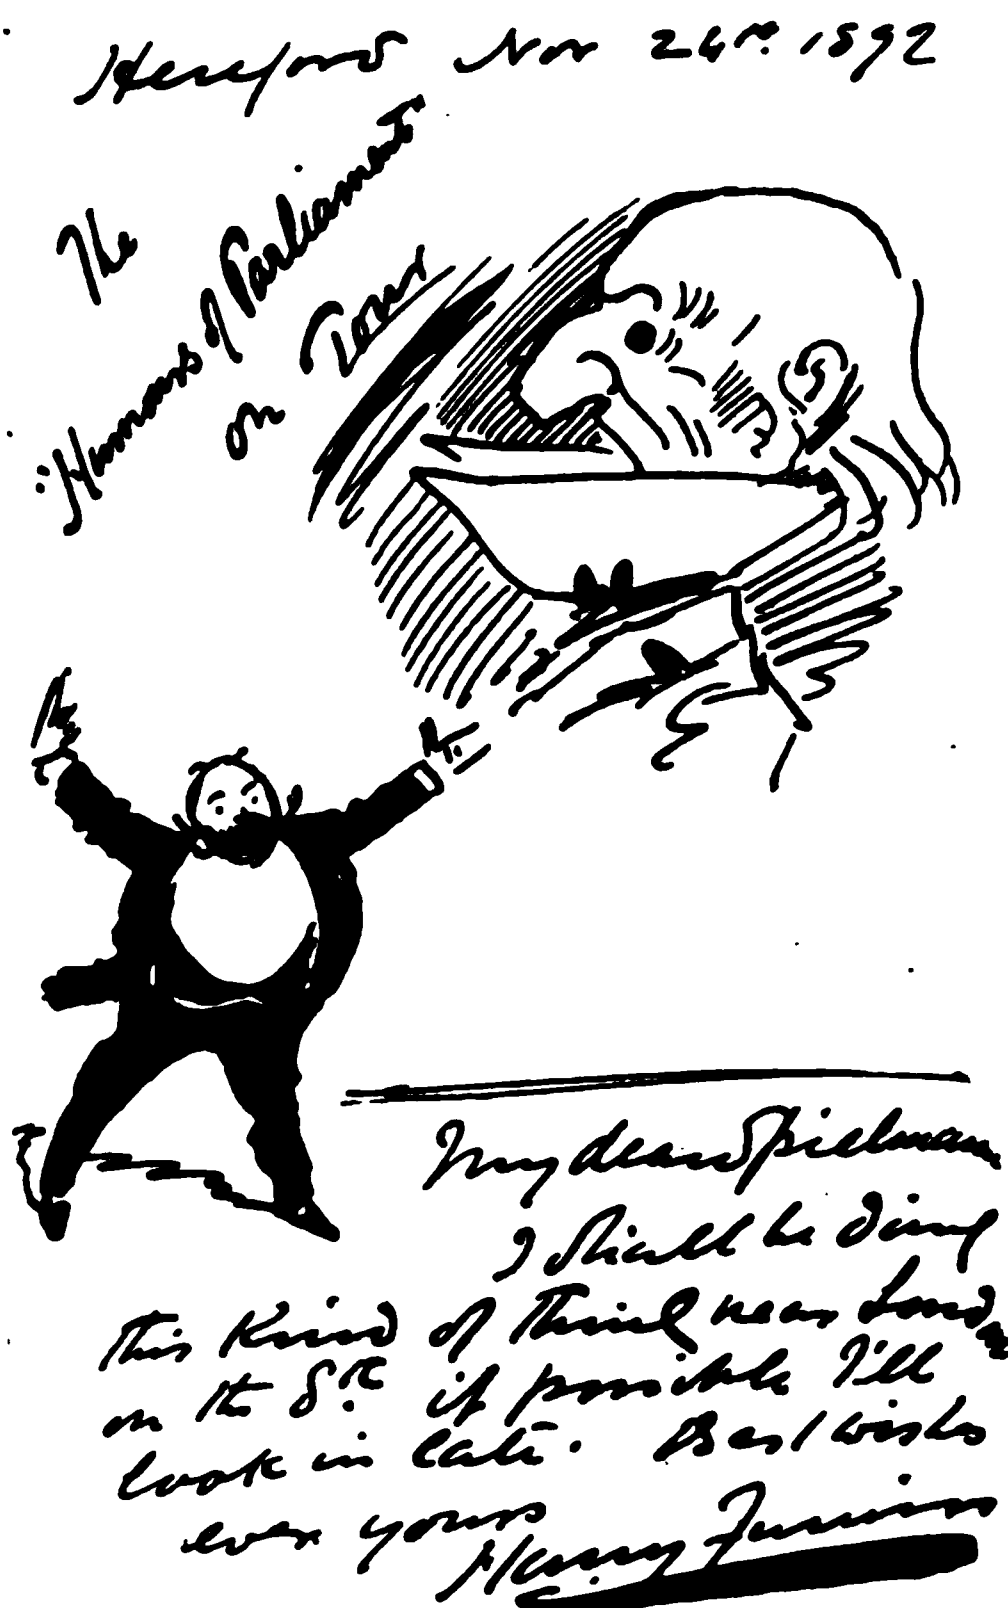 Hereford Nov 24th. 1892
The
"Humours of Parliament"
on Tour
My dear Spielmann
I shall be doing
this kind of thing near London
on the 8th. if possible I'll
look in late. Best wishes
ever yours
Harry Furniss